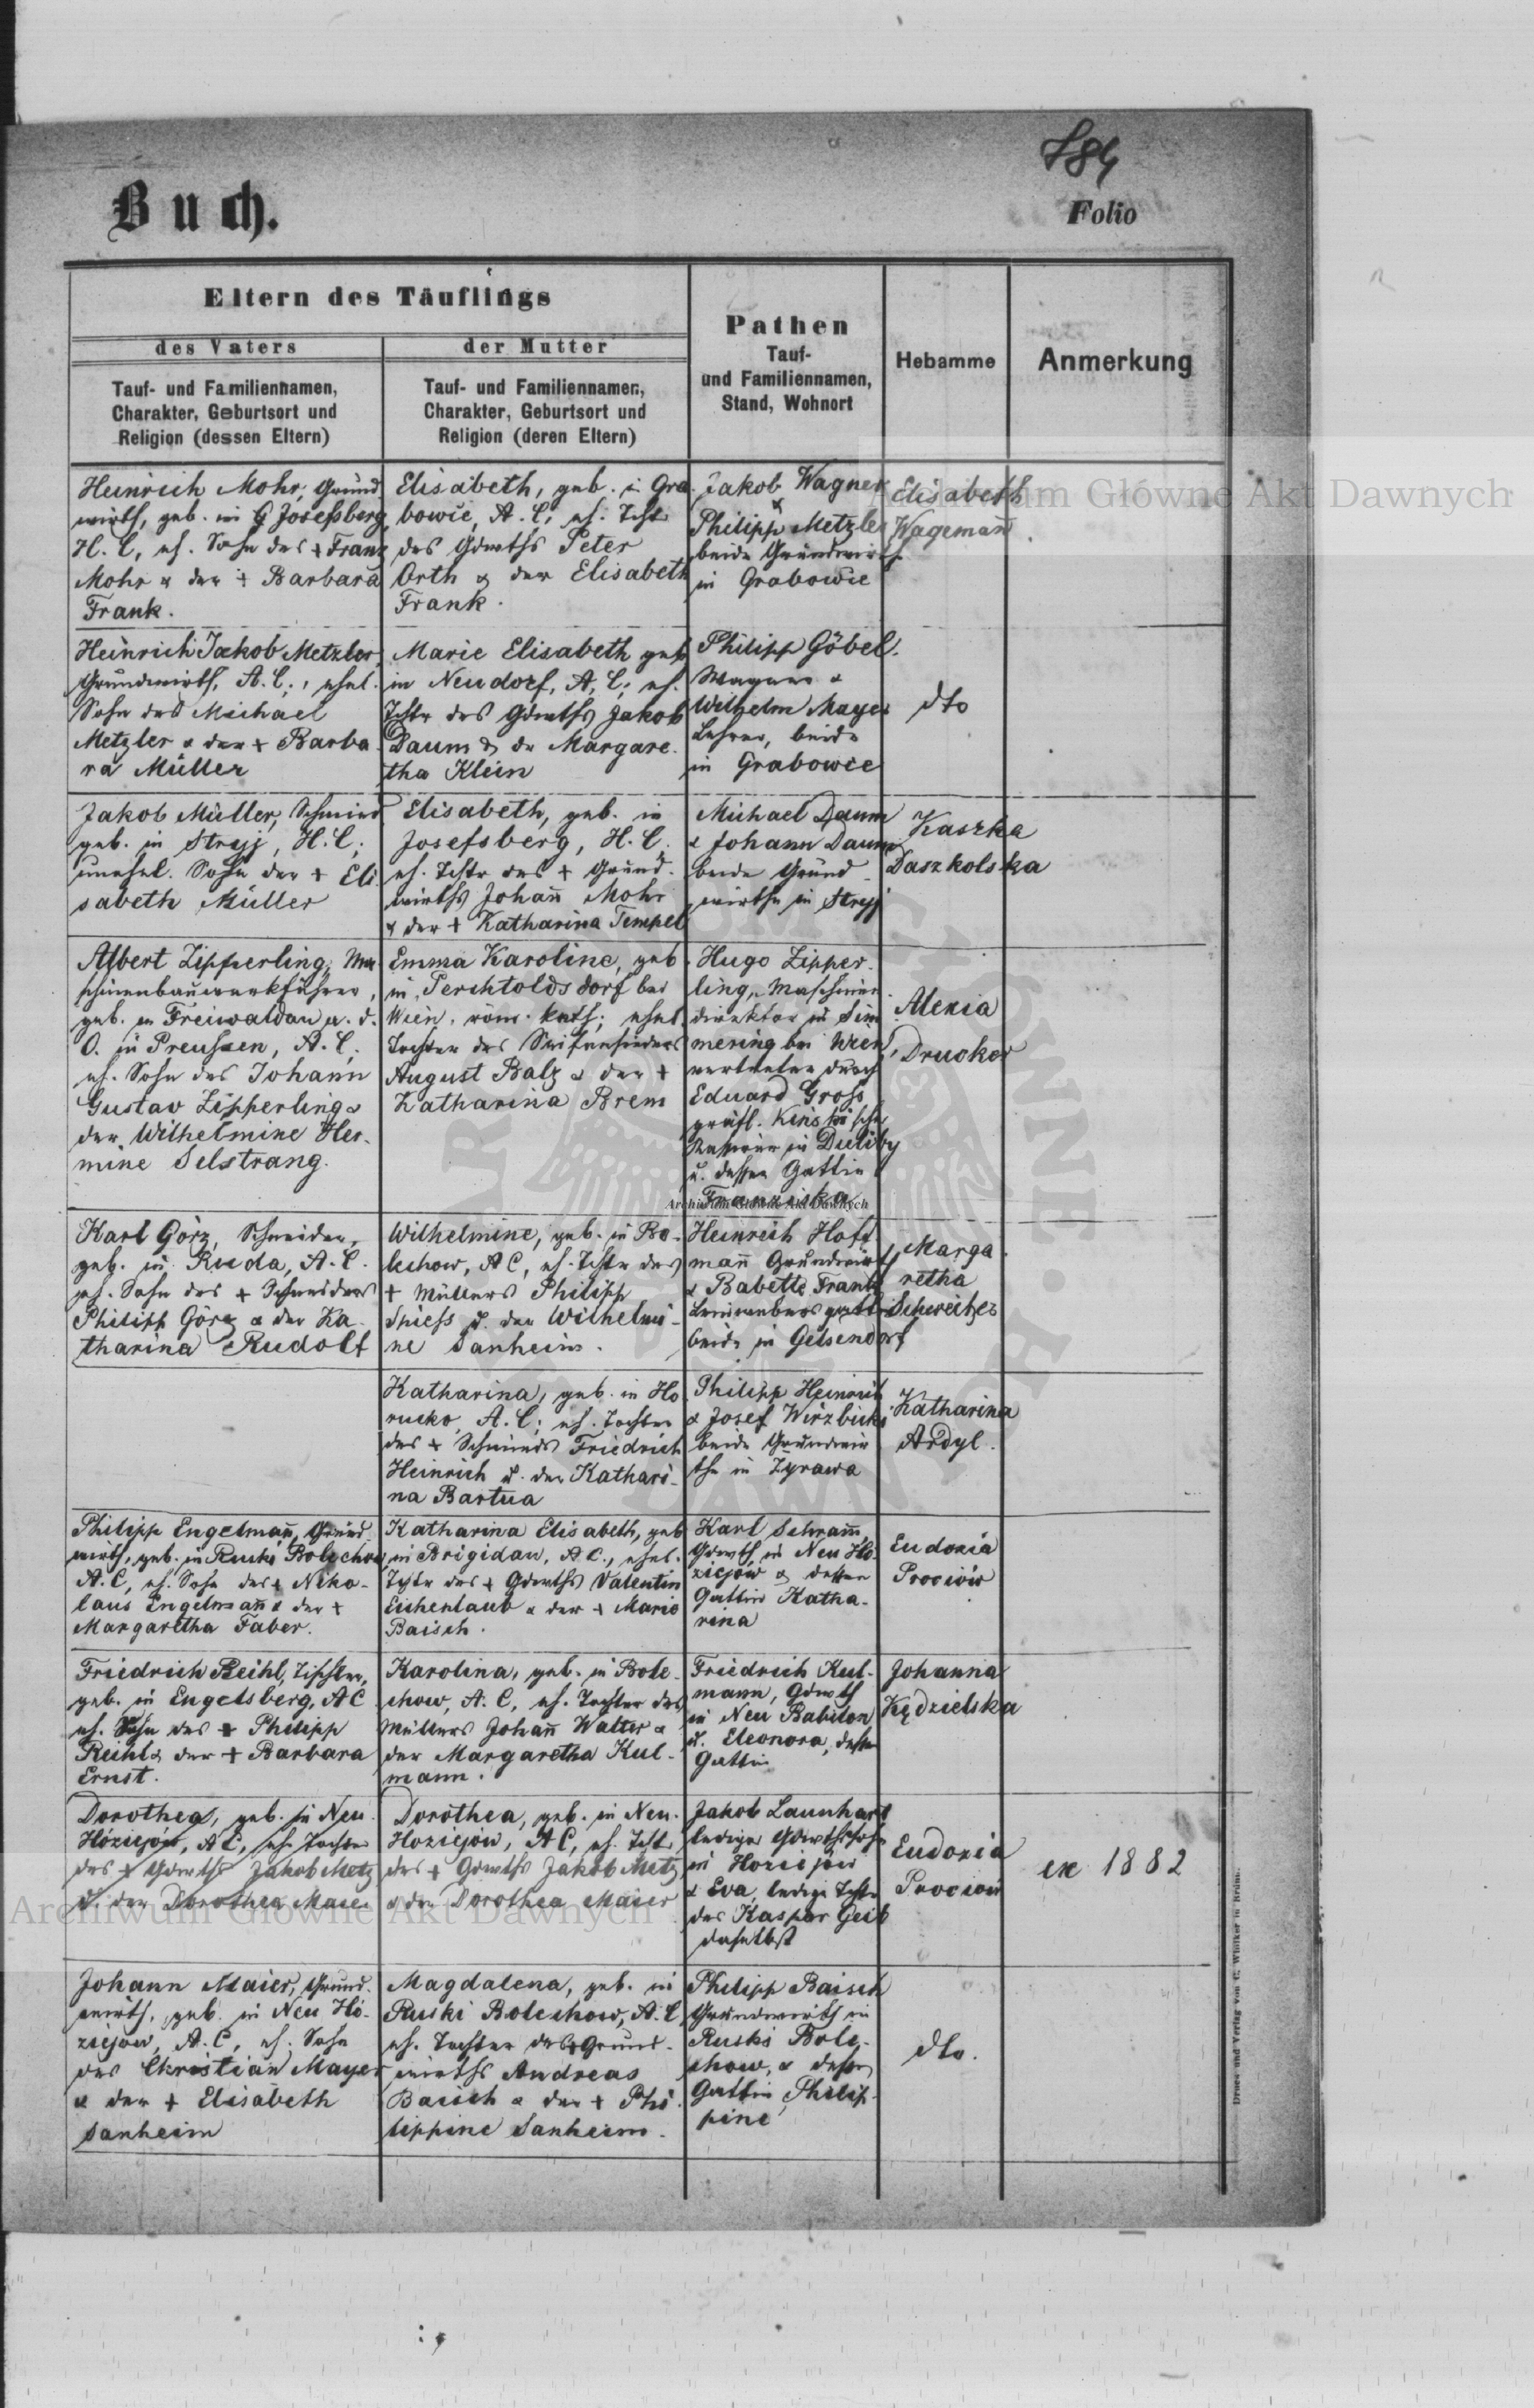 Buch.
Folio
Eltern des Täuflings
des Vaters
der Mutter
Pathen
Tauf-
und Familiennamen,
Stand, Wohnort
Hebamme
Anmerkung
Tauf- und Familiennamen,
Charakter, Geburtsort und
Religion (dessen Eltern)
Tauf- und Familiennamen,
Charakter, Geburtsort und
Religion (deren Eltern)
Heinrich Mohr, Grund
wirth, geb. in Josefsberg,
H. C, eh. Sohn des + Franz
Mohr & der + Barbara
Frank.
Elisabeth, geb. in Gra-
bowie, A. C, eh. Tchtr
des Gdwths Peter
Orth & der Elisabeth
Frank.
Jakob Wagner
&
Philipp Metzler
beide Grundwirth
in Grabowie
Elisabeth
Wagemañ
Heinrich Jakob Metzler,
Grundwirth, A. C., ehel.
Sohn des Michael
Metzler & der + Barba-
ra Müller
Marie Elisabeth geb
in Neudorf, A. C; eh.
Tchtr des Gdwths Jakob
Daum & der Margare-
tha Klein
Philipp Göbel.
Wagner &
Wilhelm Mayer
Lehrer, beide
in Grabowie
dto
Jakob Müller, Schmied
geb. in Stryj, H. C;
unehel. Sohn der + Eli-
sabeth Müller
Elisabeth, geb. in
Josefsberg, H. C.
eh. Tchtr des + Grund-
wirths Johañ Mohr
& der + Katharina Tempel
Michael Daum
& Johann Daum
beide Grund-
wirthe in Stryj
Kaszka
Daszkolska
Albert Zipperling, Ma-
schinenbauwerkführer,
geb. in Freiwaldau a. d.
O. in Preussen, A. C,
eh. Sohn des Johann
Gustav Zipperling &
der Wilhelmine Her-
mine Selstrang.
Emma Karoline, geb
in Perchtoldsdorf bei
Wien, röm. kath; ehel.
Tochter des Seifensieders
August Balz & der +
Katharina Brem
Hugo Zipper-
ling, Maschinen
direktor in Sim
mering bei Wien,
vertreten durch
Eduard Gross
gräfl. Kinski'scher
in Duliby
u. dessen Gattin
Franziska
Alexia
Drucker
Karl Görz, Schneider,
geb. in Ruda, A. C.
eh. Sohn des + Schneiders
Philipp Görz & der Ka-
tharina Rudolf
Wilhelmine, geb. in Bo-
lechow, AC, eh. Tchtr des
+ Müllers Philipp
Spiess u. der Wilhelmi-
ne Sanheim.
Heinrich Hoff-
mañ Grundwirth
& Babette Frank
beide in Gelsendorf
Marga-
retha
Schweitzer
Katharina, geb. in Ho-
rucko, A. C; eh. Tochter
des + Schmieds Friedrich
Heinrich u. der Kathari-
na Bartua
Philipp Heinrich
& Josef Wirzbicki
beide Grundwir
the in Zyrawa
Katharina
Ardyl.
Philipp Engelmañ, Grund-
wirth, geb. in Ruski Bolechow
A. C, eh. Sohn des + Niko-
laus Engelmañ & der +
Margaretha Faber.
Katharina Elisabeth, geb
in Brigidau, A.C., ehel.
Tchtr des + Gdwths Valentin
Eichenlaub & der + Marie
Baisch.
Karl Schram̃,
Gdwth in Neu Ho-
ziejów & dessen
Gattin Katha-
rina
Eudoxia
Prociów
Friedrich Reihl, Tischler,
geb. in Engelsberg, AC
eh. Sohn des + Philipp
Reihl & der + Barbara
Ernst.
Karolina, geb. in Bole-
chow, A. C, eh. Tochter des
Müllers Johañ Walter &
der Margaretha Kul-
mann.
Friedrich Kul-
mann, Gdwth
in Neu Babilon
u. Eleonora, dessen
Gattin
Johanna
Kędzielska
Dorothea, geb. in Neu
Hoziejow, AC, eh. Tochter
des + Gdwths Jakob Metz
u. der Dorothea Maier
Dorothea, geb. in Neu-
Hoziejow, AC, eh. Tchtr
des + Gdwths Jakob Metz
& der Dorothea Maier
Jakob Launhart
lediger Gdwthssohn
in Hoziejów
& Eva, ledige Tchtr
des Kaspar Geib
daselbst
Eudoxia
Prociów
ex 1882
Johann Maier, Grund-
wirth, geb. in Neu Ho-
ziejow, A. C, eh. Sohn
des Christian Mayer
& der + Elisabeth
Sanheim
Magdalena, geb. in
Ruski Bolechow, A. C
eh. Tochter des + Grund-
wirths Andreas
Baisch & der + Phi-
lippine Sanheim.
Philipp Baisch
Grundwirth in
Ruski Bole-
chow, & dessen
Gattin Philip-
pine
dto.
Archiwum Główne Akt Dawnych
Archiwum Główne Akt Dawnych
Archiwum Główne Akt Dawnych